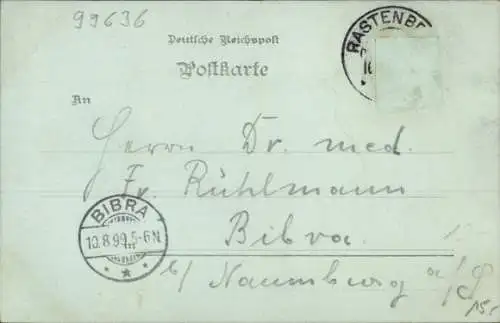 99636
Deutsche Reichspost
Postkarte
RASTENBE
An
Herrn Dr. med.
Fr. Rühlmann
BIBRA
10.8.99. 5-6N
Bibra
b/ Naumburg a/S